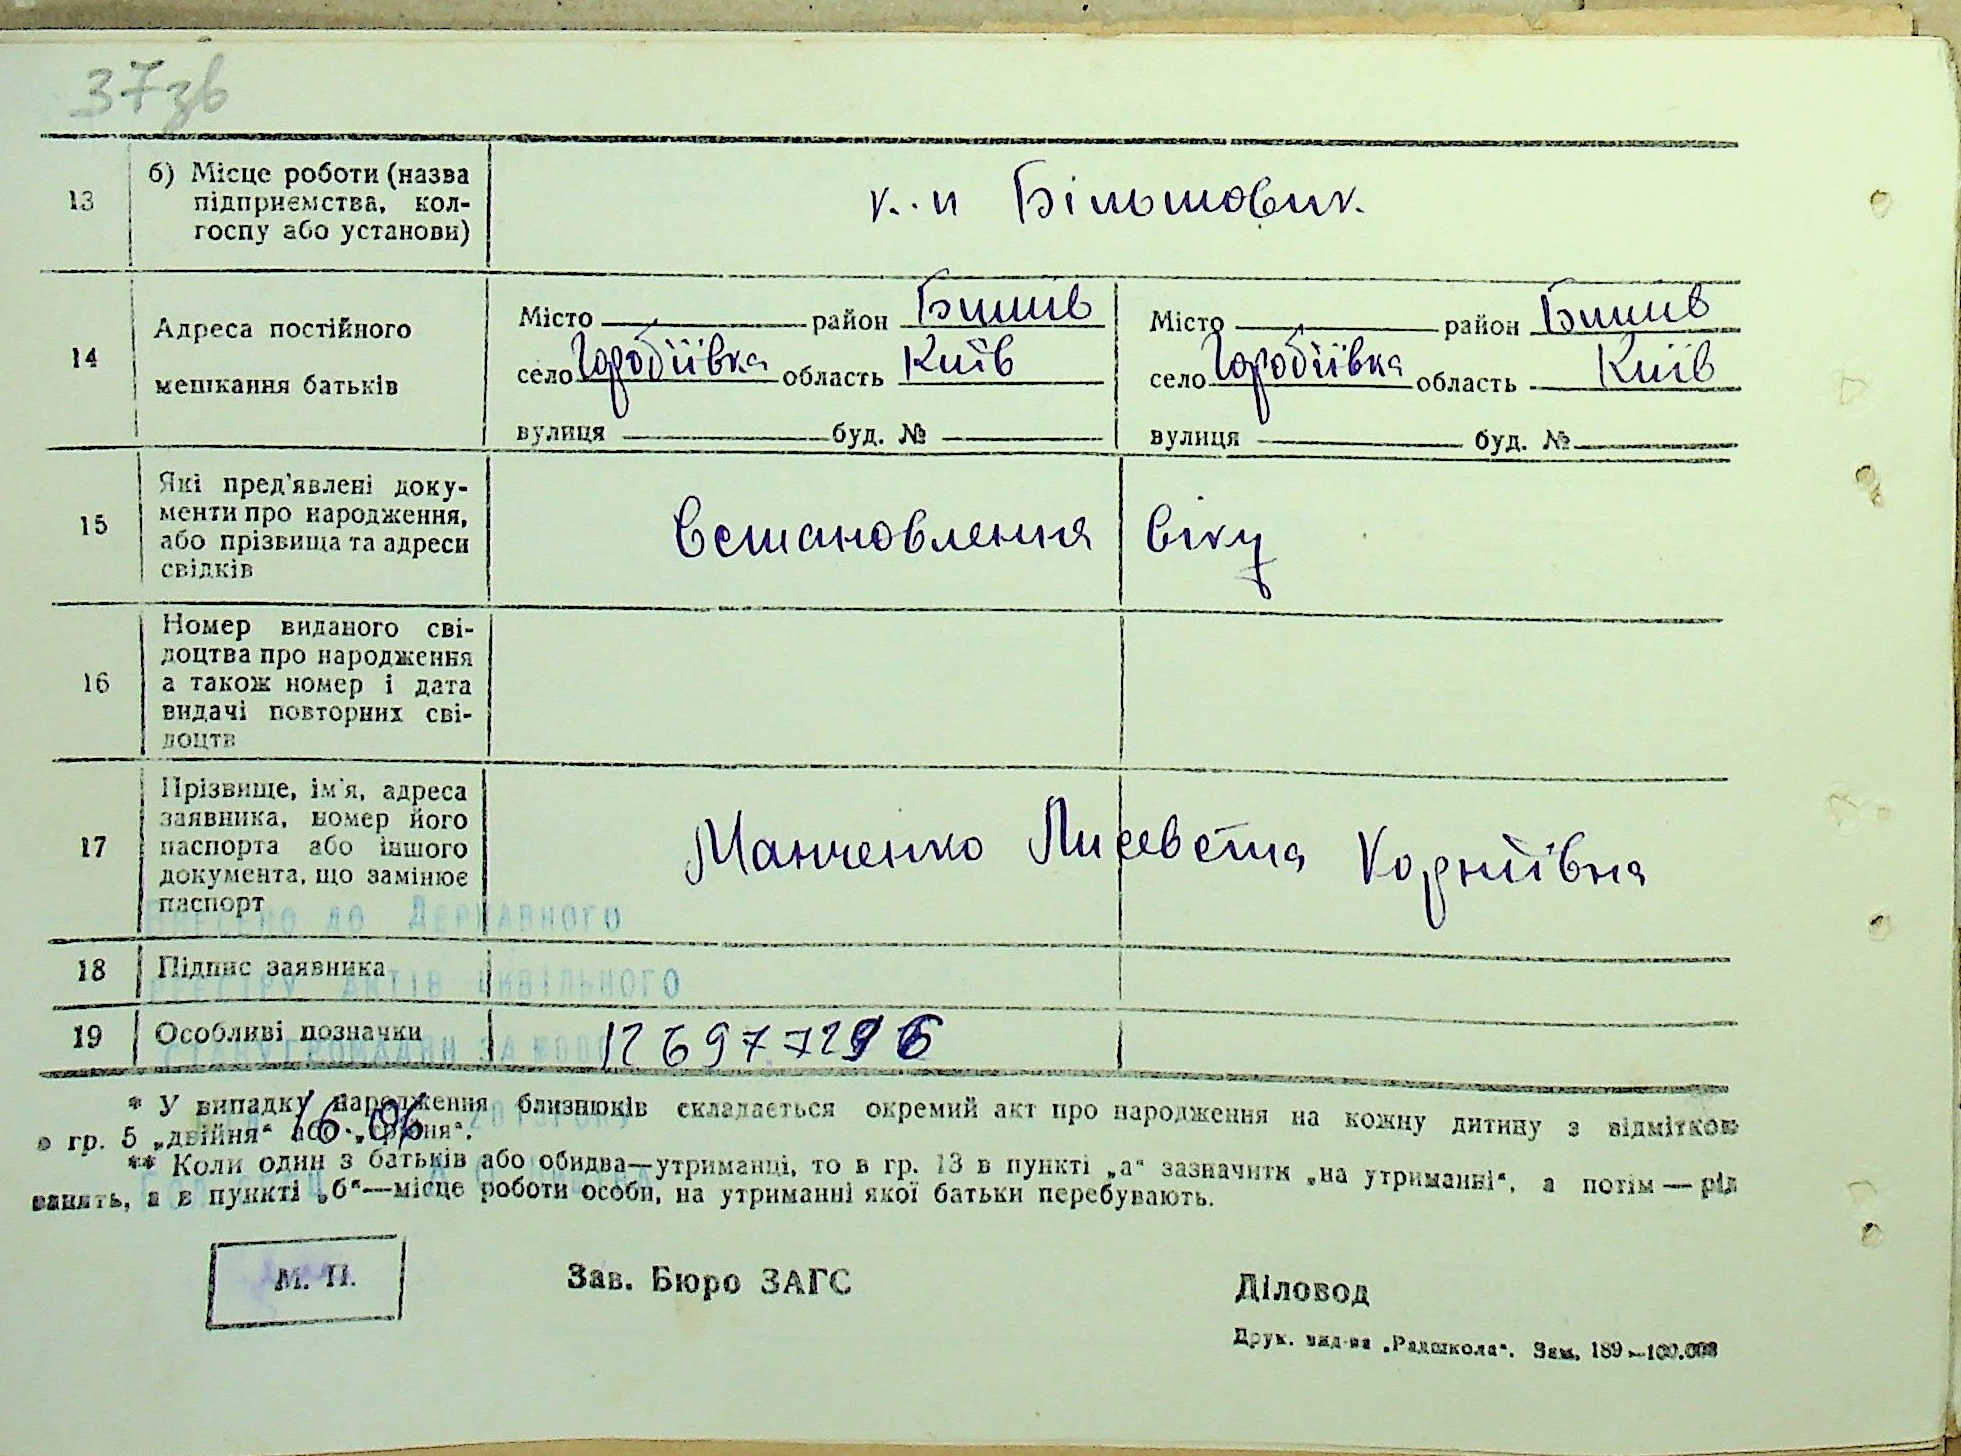 37зв
13
б) Місце роботи (назва
підприємства, кол-
госпу або установи)
к.-п Більшовик.
14
Адреса постійного
мешкання батьків
Місто район Бишів
село Горобіївка область Київ
вулиця буд. №
Місто район Бишів
село Горобіївка область Київ
вулиця буд. №
15
Які пред'явлені доку-
менти про народження,
або прізвища та адреси
свідків
Встановлення віку
16
Номер виданого сві-
доцтва про народження
а також номер і дата
видачі повторних сві-
доцтв
17
Прізвище, ім'я, адреса
заявника, номер його
паспорта або іншого
документа, що замінює
паспорт
Манченко Лисевета Корніївна
ВНЕСЕНО ДО ДЕРЖАВНОГО
18
Підпис заявника
РЕЄСТРУ АКТІВ ЦИВІЛЬНОГО
19
Особливі позначки
СТАНУ ГРОМАДЯН ЗА
* У випадку народження близнюків складається окремий акт про народження на кожну дитину з відміткою
в гр. 5 „двійня" або „трійня".
16 06
** Коли один з батьків або обидва—утриманці, то в гр. 13 в пункті „а" зазначити „на утриманні", а потім — рід
занять, а в пункті „б"—місце роботи особи, на утриманні якої батьки перебувають.
М. П.
Зав. Бюро ЗАГС
Діловод
Друк. вид-ва „Радшкола". Зам. 189—100.000